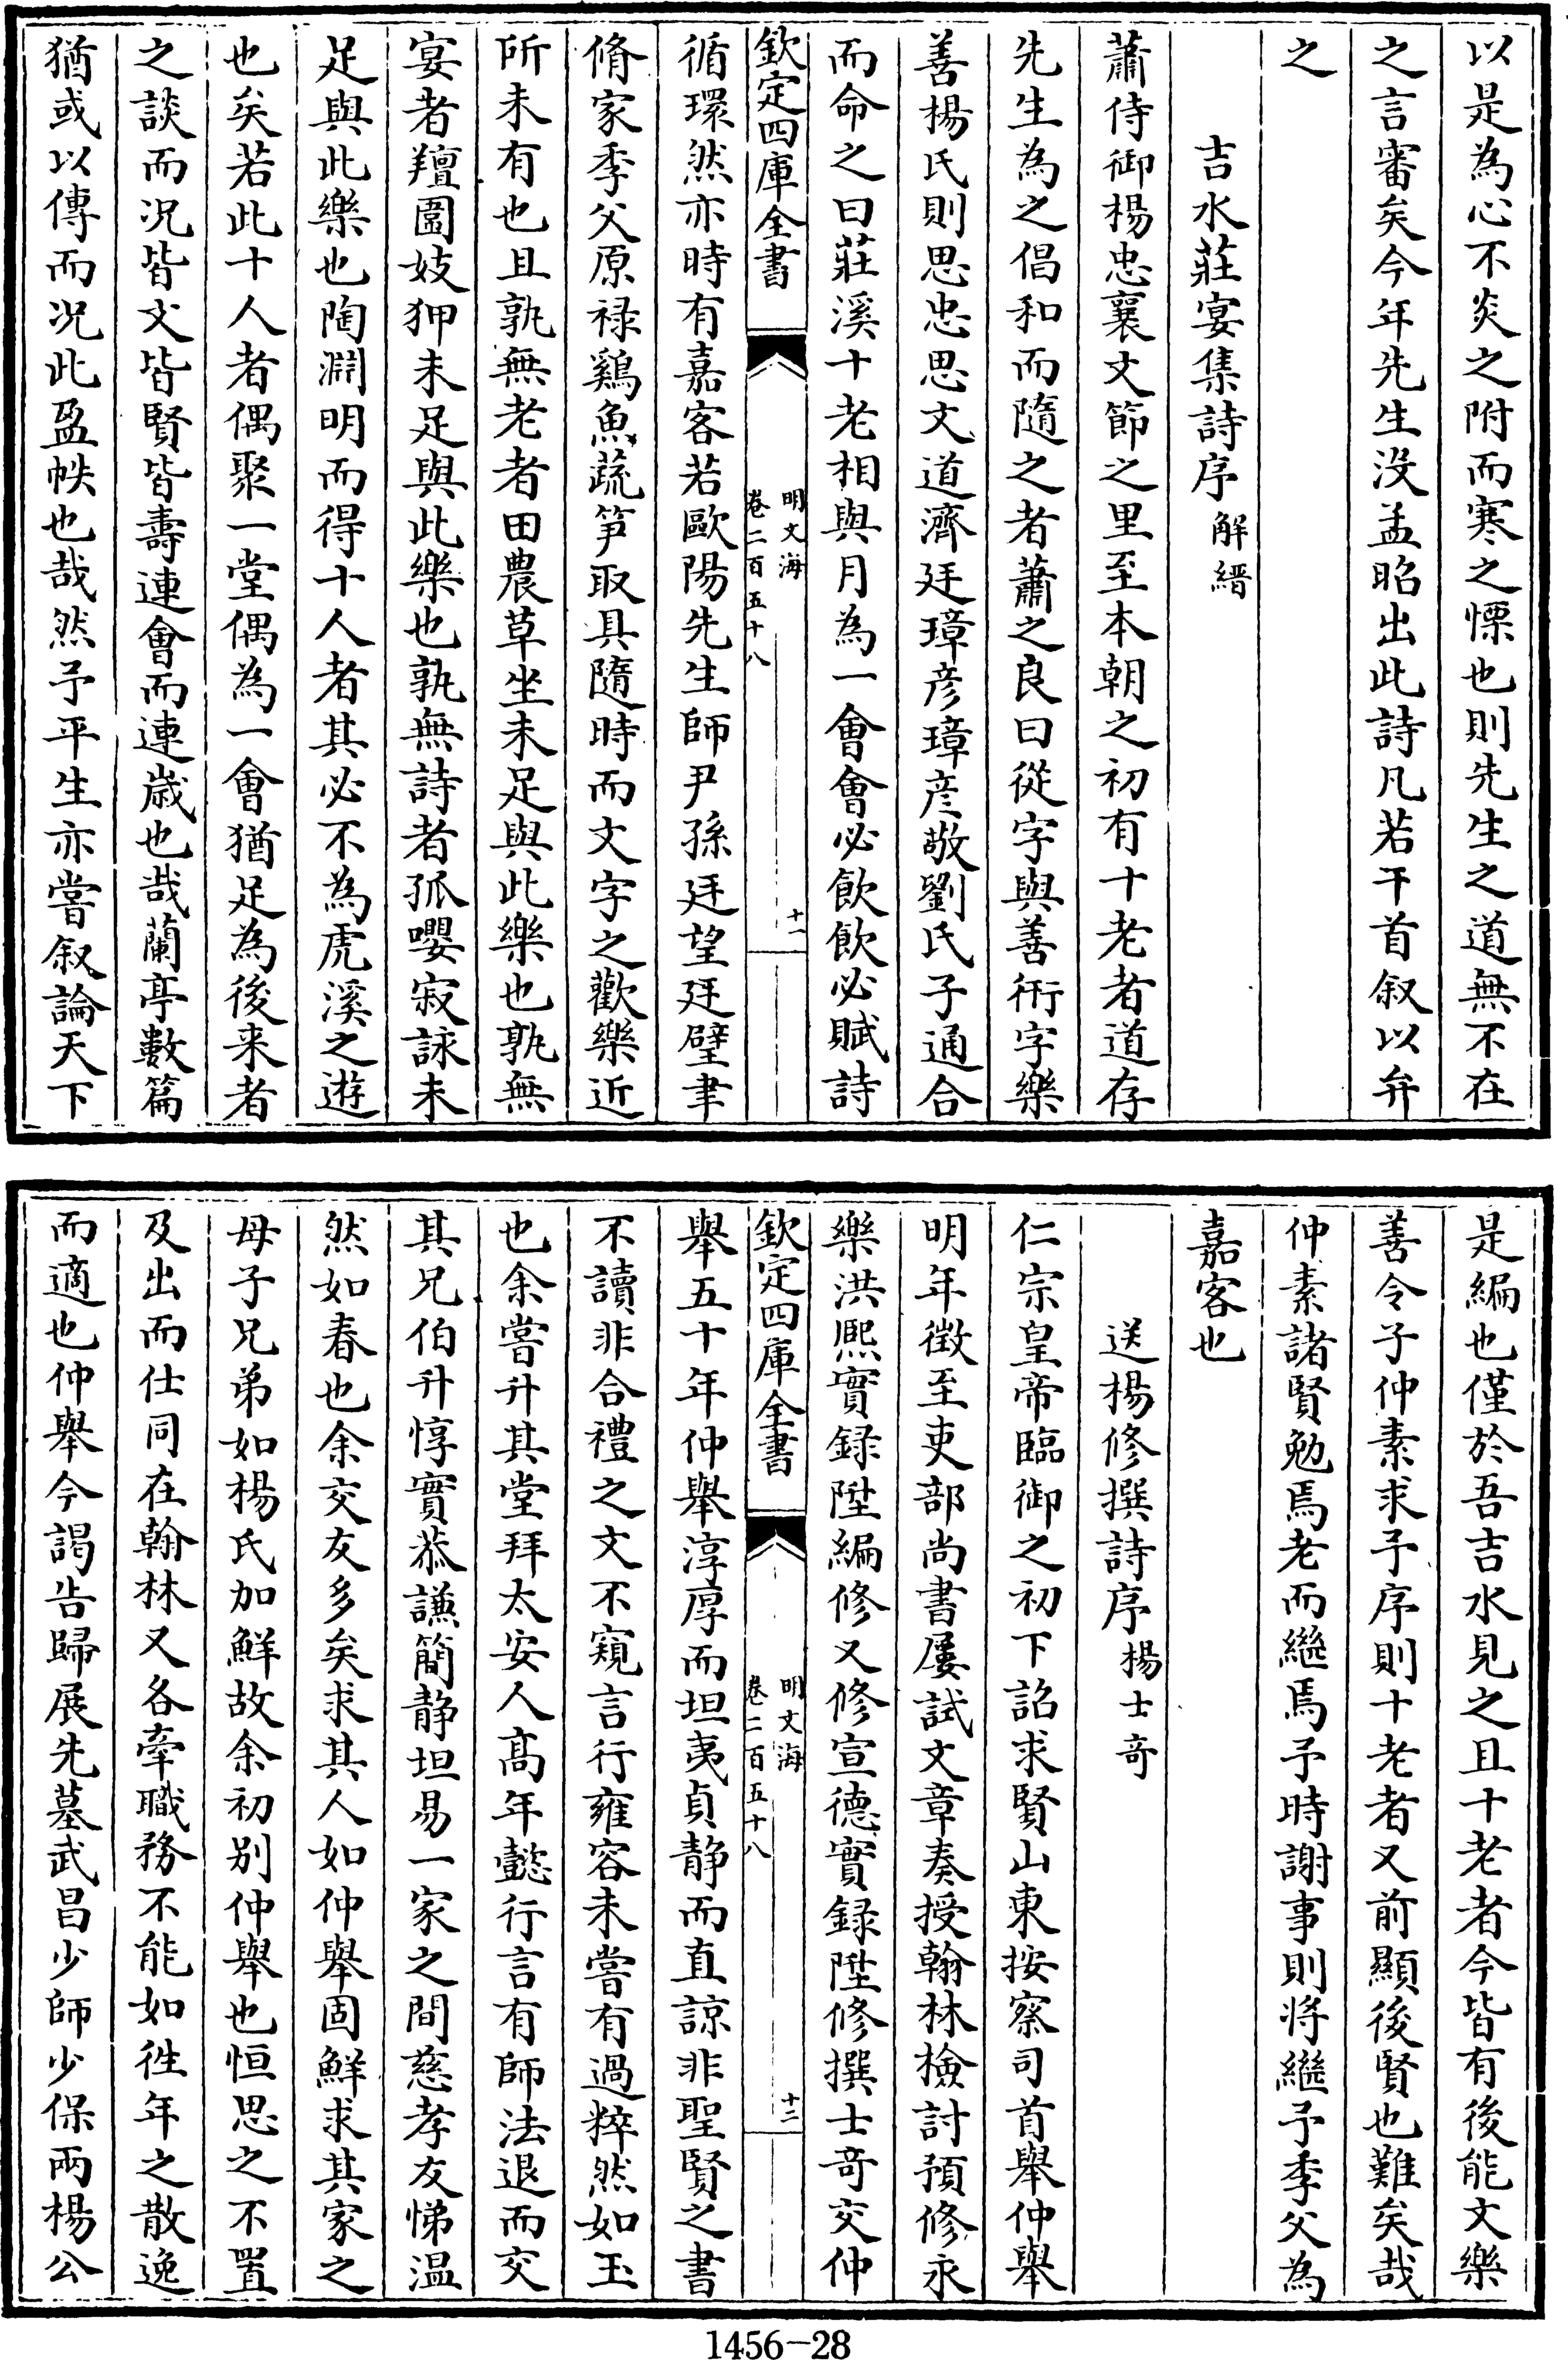 以是為心不炎之附而寒之慄也則先生之道無不在
之言審矣今年先生没孟昭出此詩凡若干首叙以弁
之
吉水莊宴集詩序 解縉
蕭侍御楊忠襄文節之里至本朝之初有十老者道存
先生為之倡和而隨之者蕭之良曰從字與善衎字樂
善楊氏則思忠思文道濟廷璋彦璋彦敬劉氏子通合
而命之曰莊溪十老相與月為一會會必飲飲必賦詩
欽定四庫全書
明文海
卷二百五十八
十一
循環然亦時有嘉客若歐陽先生師尹孫廷望廷壁聿
脩家季父原禄鷄魚蔬笋取具隨時而文字之歡樂近
所未有也且孰無老者田農草坐未足與此樂也孰無
宴者羶圍妓狎未足與此樂也孰無詩者孤嚶寂詠未
足與此樂也陶淵明而得十人者其必不為虎溪之遊
也矣若此十人者偶聚一堂偶為一會猶足為後来者
之談而况皆文皆賢皆壽連會而連歲也哉蘭亭數篇
猶或以傳而况此盈帙也哉然予平生亦嘗叙論天下
是編也僅於吾吉水見之且十老者今皆有後能文樂
善令子仲素求予序則十老者又前顯後賢也難矣哉
仲素諸賢勉焉老而繼焉予時謝事則将繼予季父為
嘉客也
送楊修撰詩序 楊士奇
仁宗皇帝臨御之初下詔求賢山東按察司首舉仲舉
明年徴至吏部尚書屢試文章奏授翰林檢討預修永
樂洪熙實録陞編修又修宣德實録陞修撰士奇交仲
欽定四庫全書
明文海
卷二百五十八
十二
舉五十年仲舉淳厚而坦夷貞静而直諒非聖賢之書
不讀非合禮之文不窺言行雍容未嘗有過粹然如玉
也余嘗升其堂拜太安人髙年懿行言有師法退而交
其兄伯升惇實恭謙簡静坦易一家之間慈孝友悌温
然如春也余交友多矣求其人如仲舉固鮮求其家之
母子兄弟如楊氏加鮮故余初别仲舉也恒思之不置
及出而仕同在翰林又各牽職務不能如徃年之散逸
而適也仲舉今謁告歸展先墓武昌少師少保兩楊公
1456-28